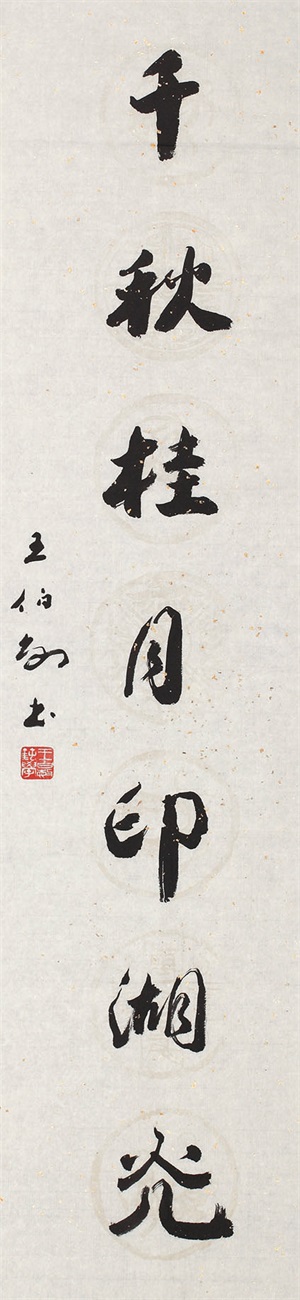 千秋桂月印湖光
王伯敏书